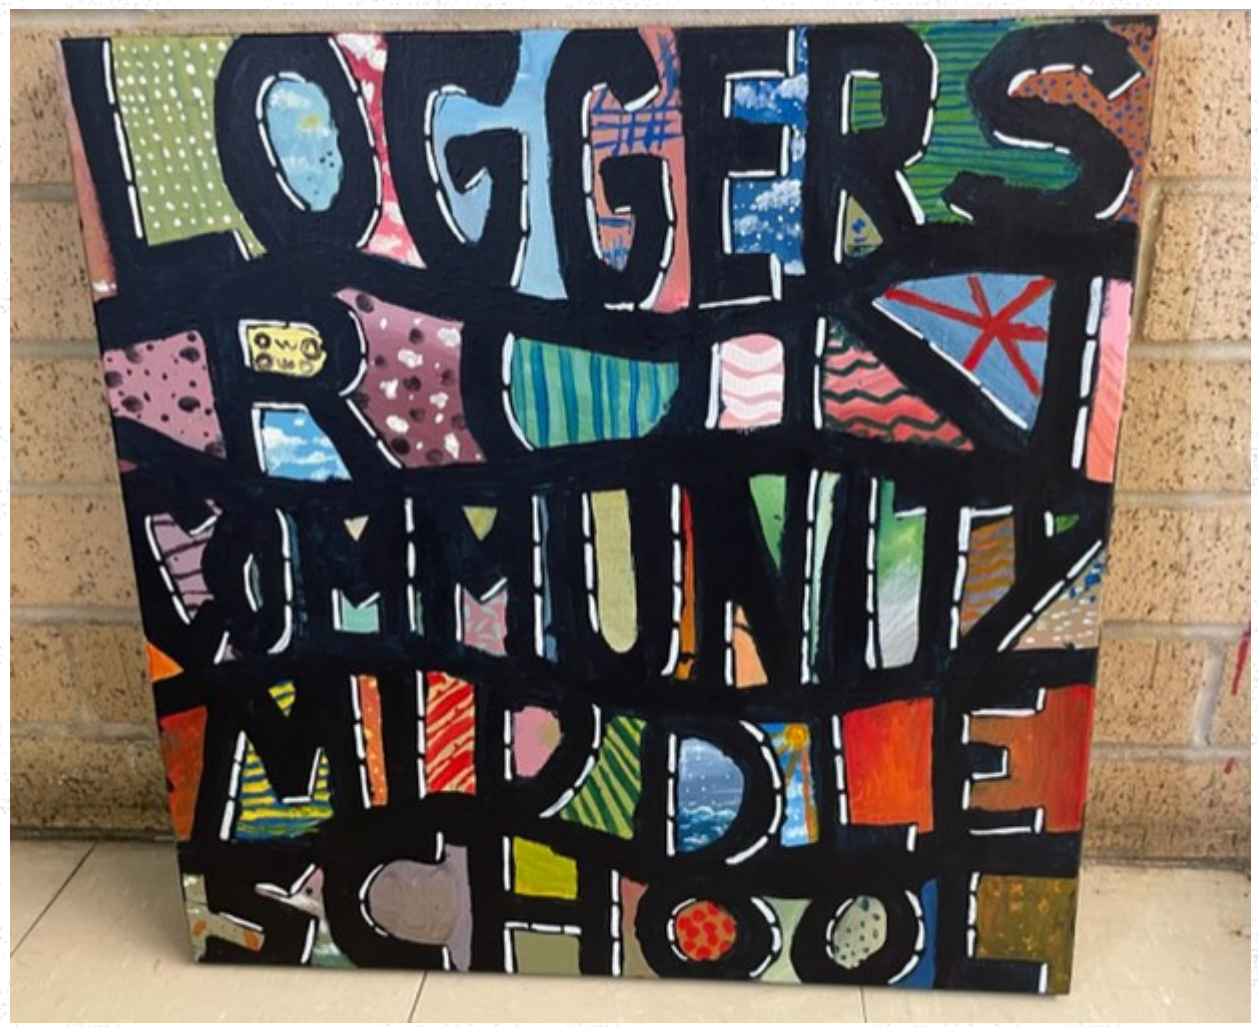 LOGGERS
RUN
COMMUNITY
MIDDLE
SCHOOL